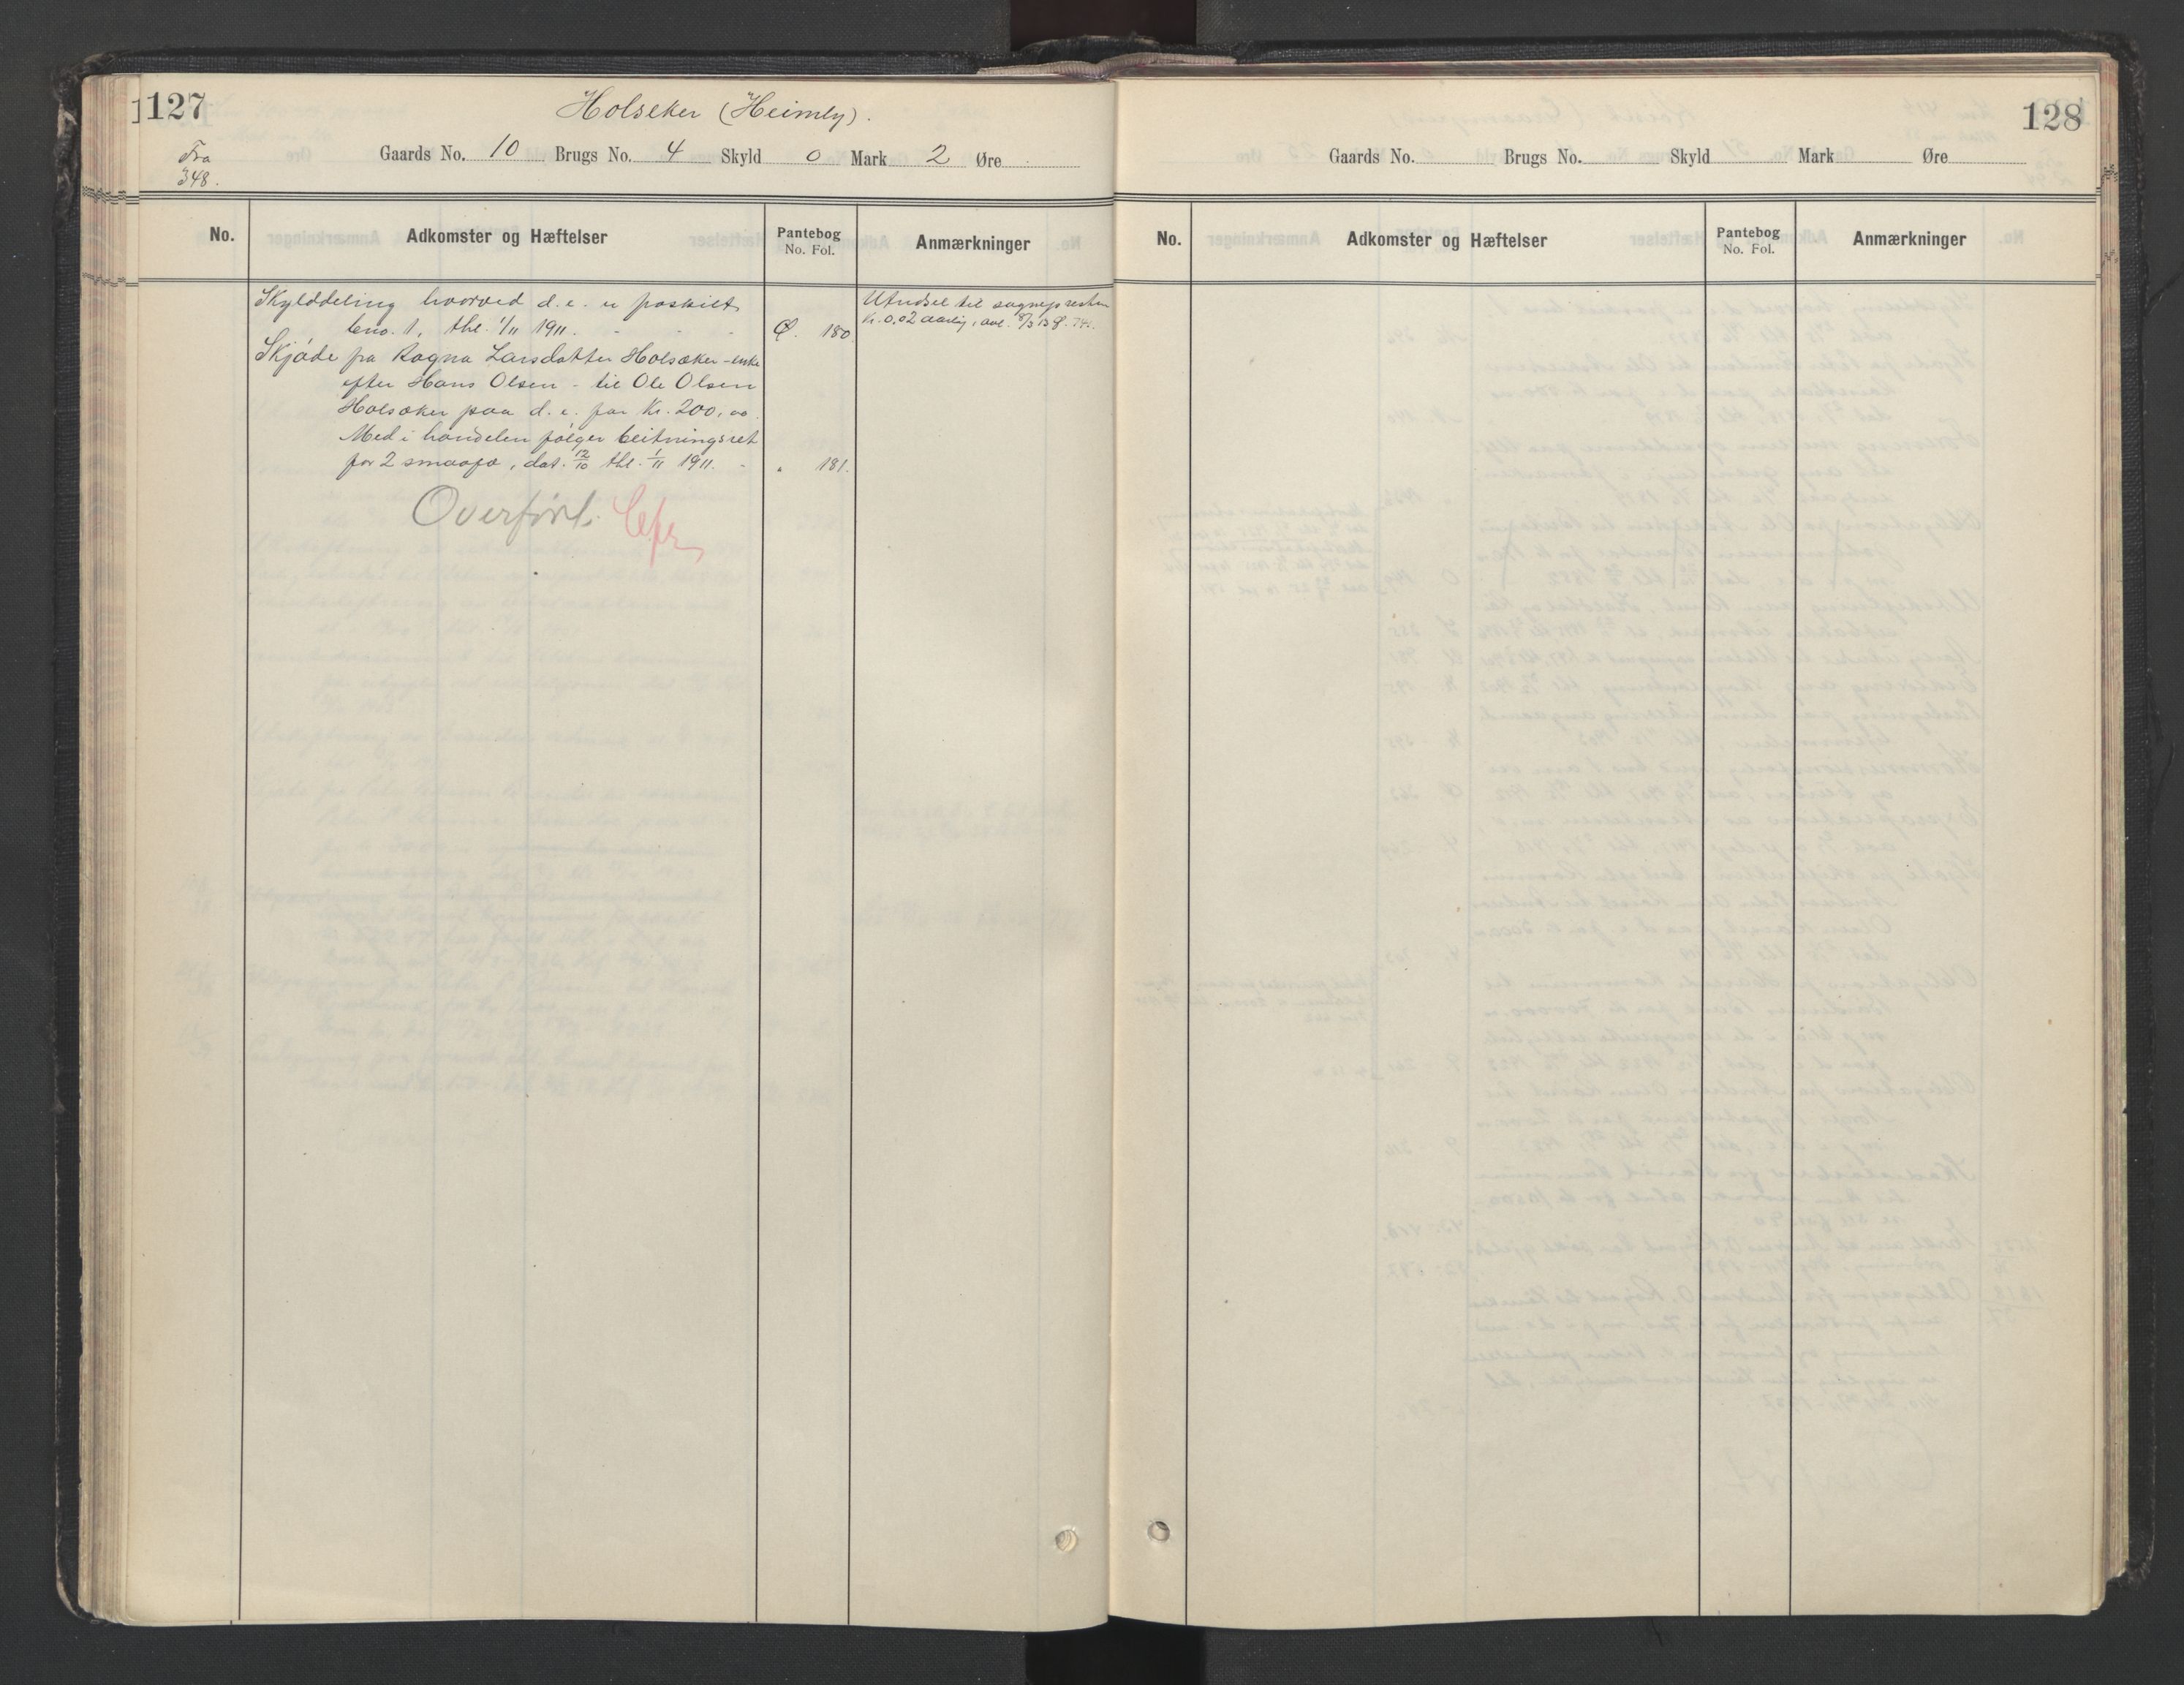 127
Holseker (Heimly).
Fra
348.
Gaards No. 10 Brugs No. 4 Skyld 0 Mark 2 Øre
No. Adkomster og Hæftelser Pantebog No. Fol. Anmærkninger
Skylddeling hvorved d. e. er fraskilt
bno. 1, thl. 1/11 1911. - - - 180
Skjøde fra Ragna Larsdatter Holsæker - enke
efter Hans Olsen - til Ole Olsen
Holsæker paa d. e. for Kr. 200,00.
Med i handelen følger beitningsret
for 2 smaafæ, dat. 12/10 thl. 1/11 1911. - " 181.
Utvidsel til sognepresten
Kr. 0,02 aarlig, avl.
Overført.
128
Gaards No. Brugs No. Skyld Mark Øre
No. Adkomster og Hæftelser Pantebog No. Fol. Anmærkninger